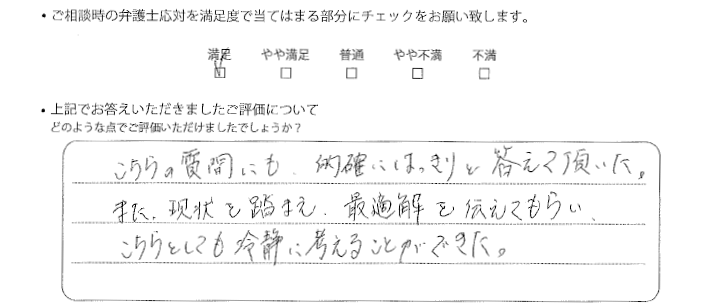 ・ご相談時の弁護士応対を満足度で当てはまる部分にチェックをお願い致します。
満足 やや満足 普通 やや不満 不満
・上記でお答えいただきましたご評価について
どのような点でご評価いただけましたでしょうか?
こちらの質問にも、的確にはっきりと答えて頂いた。
また、現状を踏まえ、最適解を伝えてもらい、
こちらとしても冷静に考えることができた。